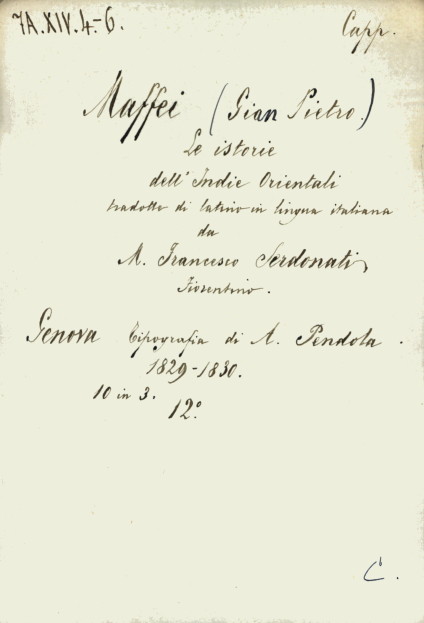 7A.XIV.4.-6.
Capp.
Maffei (Gian Pietro.)
Le istorie
dell' Indie Orientali
tradotte di latino in lingua italiana
da
M. Francesco Serdonati
Fiorentino.
Genova Tipografia di A. Pendola.
1829-1830.
10 in 3.
12°